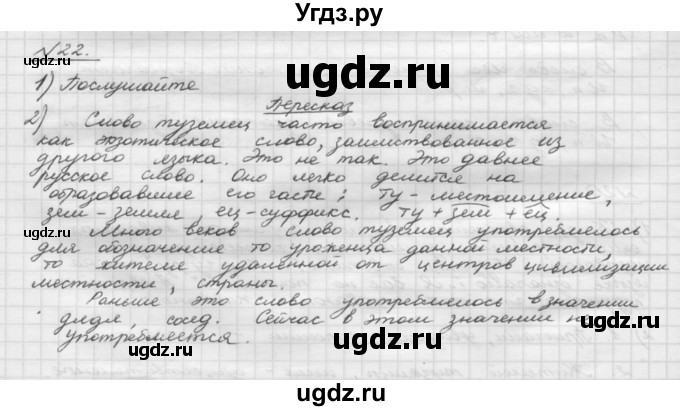 Угдз.ру
№22.
ugdz.ru
1) Послушайте
Пересказ
2) Слово туземец часто воспринимается
как экзотическое слово, заимствованное из
другого языка. Это не так. Это давнее
русское слово. Оно легко делится на
образовавшие его части: ту-местоимение,
зем-земля, ец-суффикс. ту+зем+ец.
Много веков слово туземец употреблялось
для обозначение то уроженца данной местности,
то жителя удаленной от центров цивилизации
местности, страны.
Раньше это слово употреблялось в значении
дядя, сосед. Сейчас в этом значении не
употребляется.
ugdz.ru
ugdz.ru
ugdz.ru
ugdz.ru
ugdz.ru
ugdz.ru
ugdz.ru
ugdz.ru